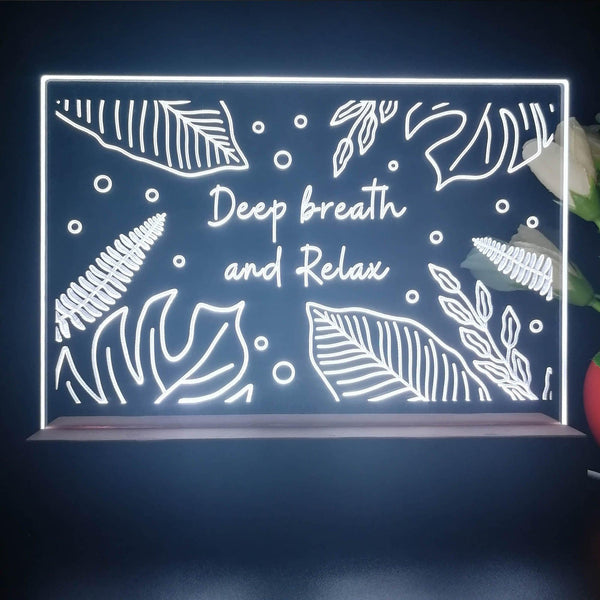 Deep breath
and Relax